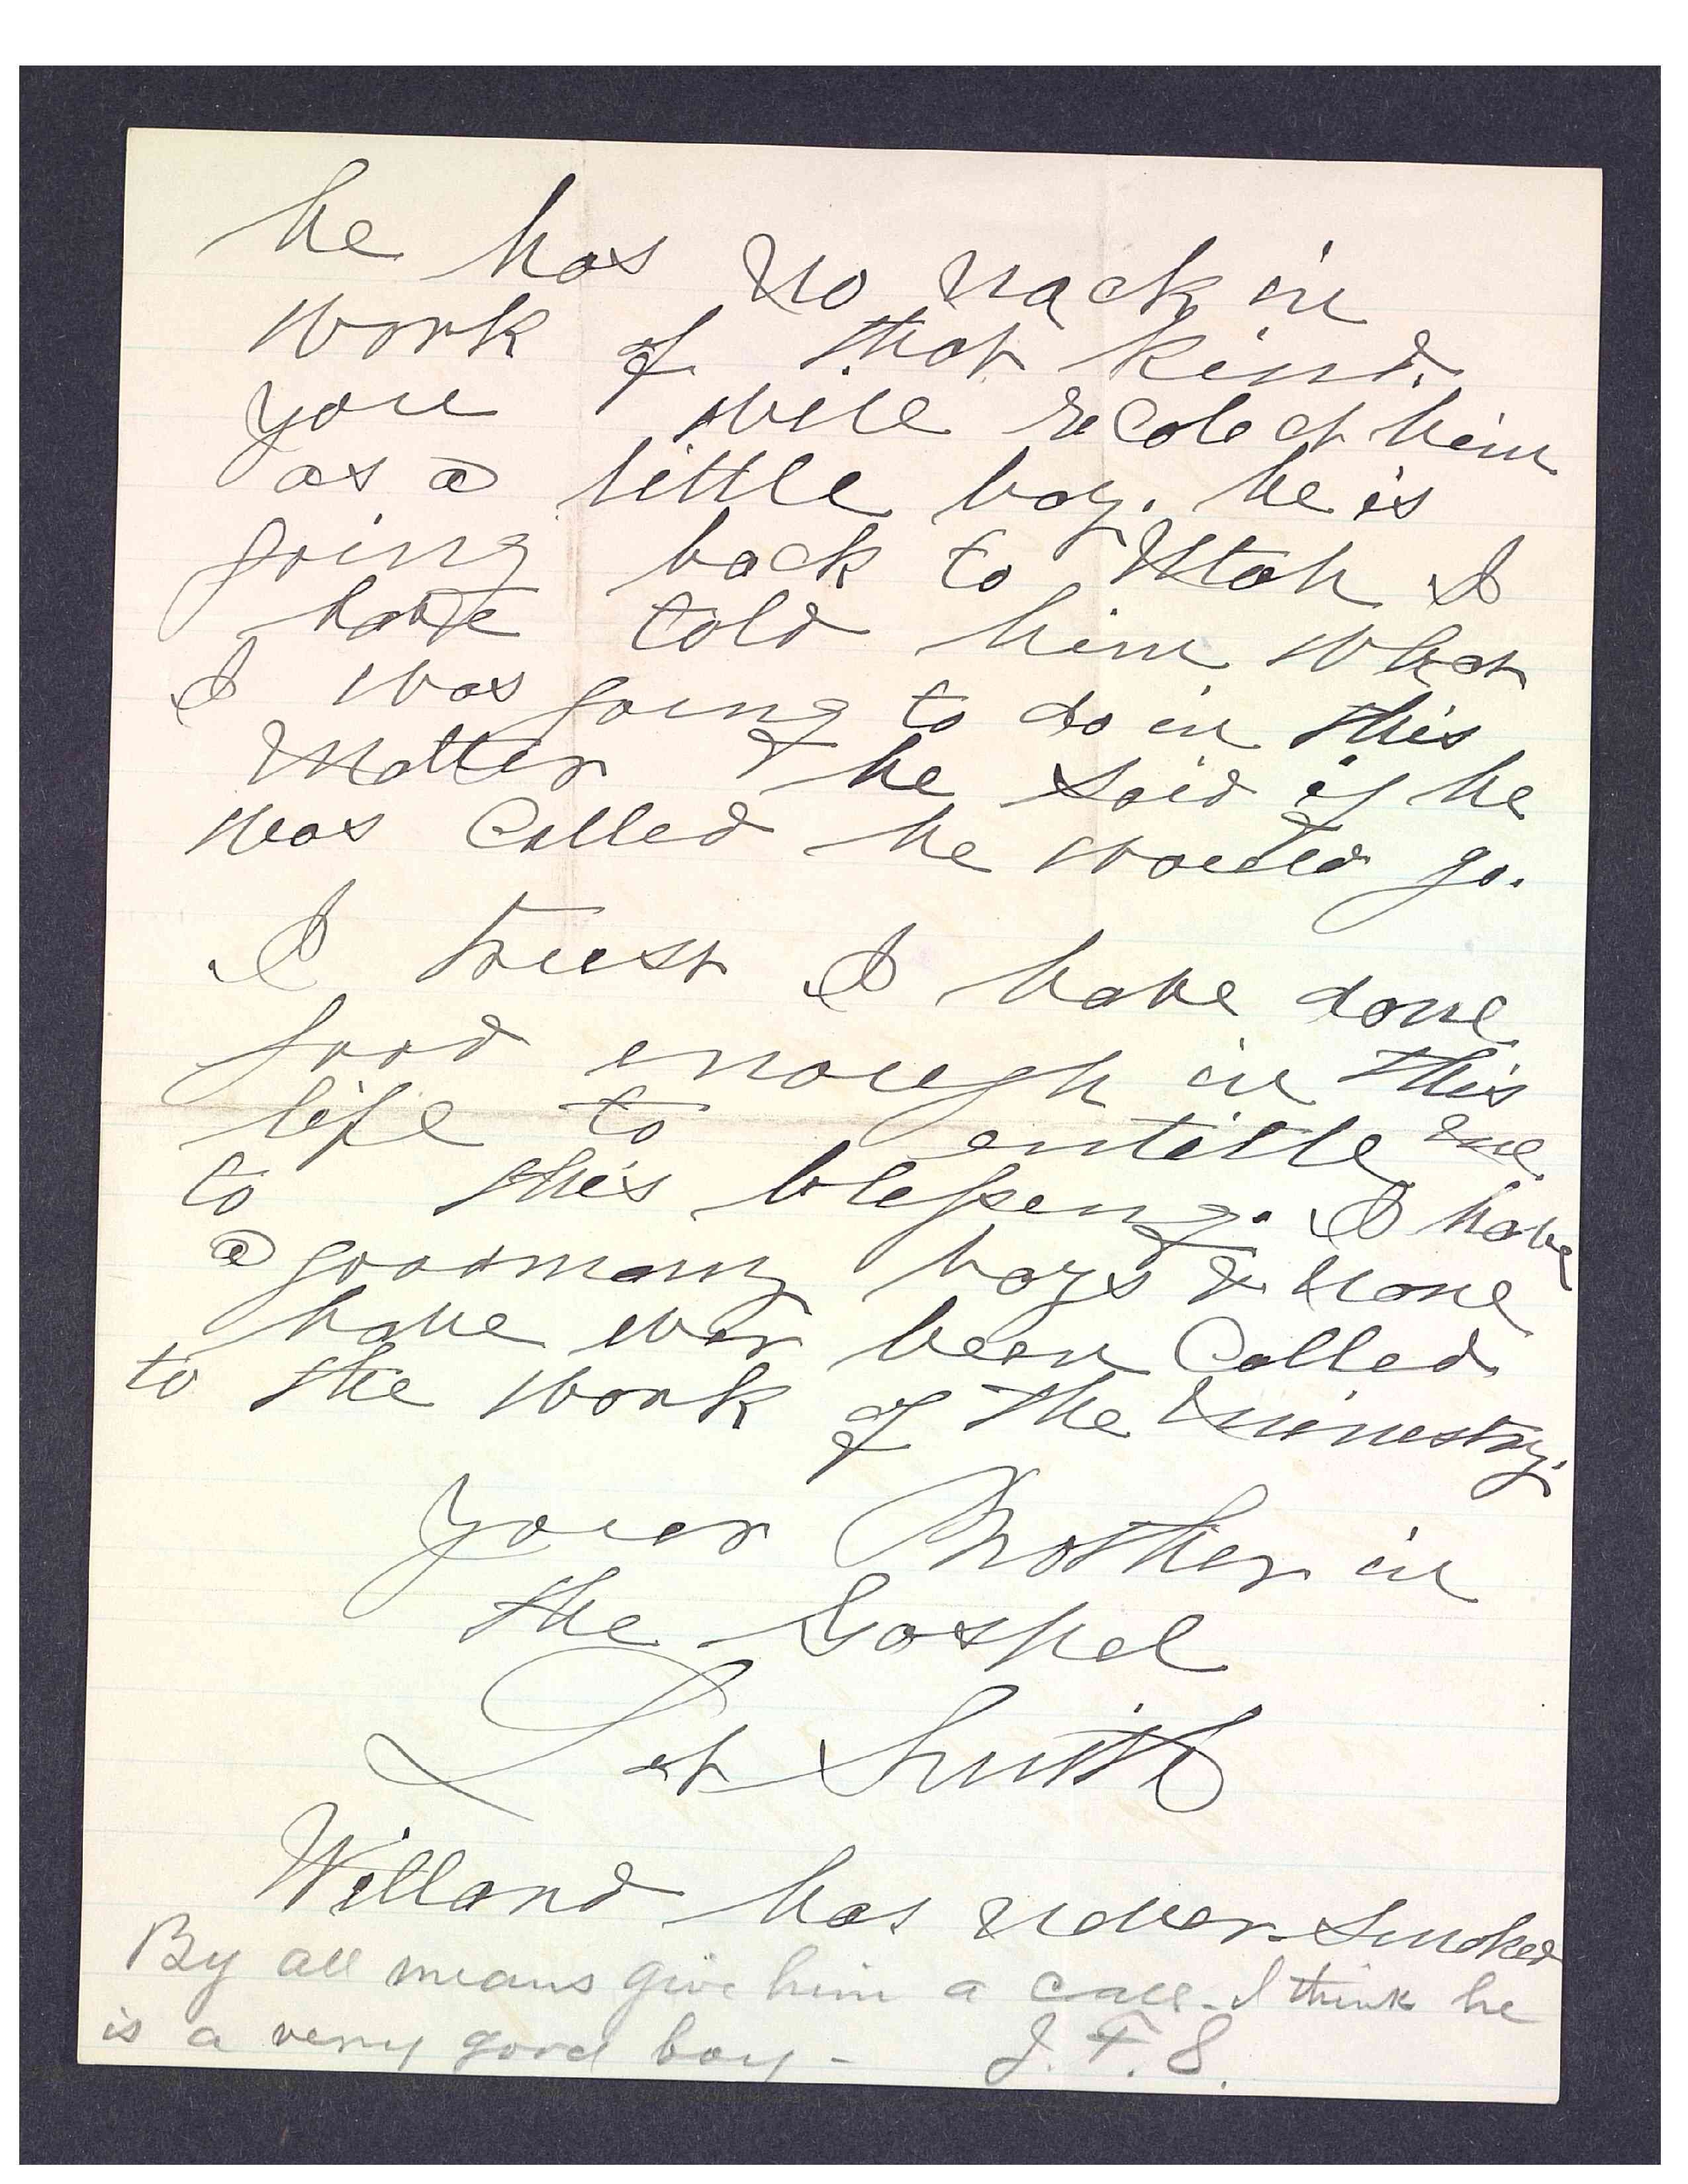 he has no nack in
work of that kind.
you will recolect him
as a little boy. he is
going back to Utah I
have told him what
I was going to do in this
Matter & he said if he
was Called he would go.
I trust I have done
good enough in this
life to entitle me
to this blessing. I have
a goodmany boys & none
have ever been Called
to the work of the ministry.
your Brother in
the Gospel
Lot Smith
Willard has never smoked
By all means give him a call. I think he
is a very good boy - J. F. S.